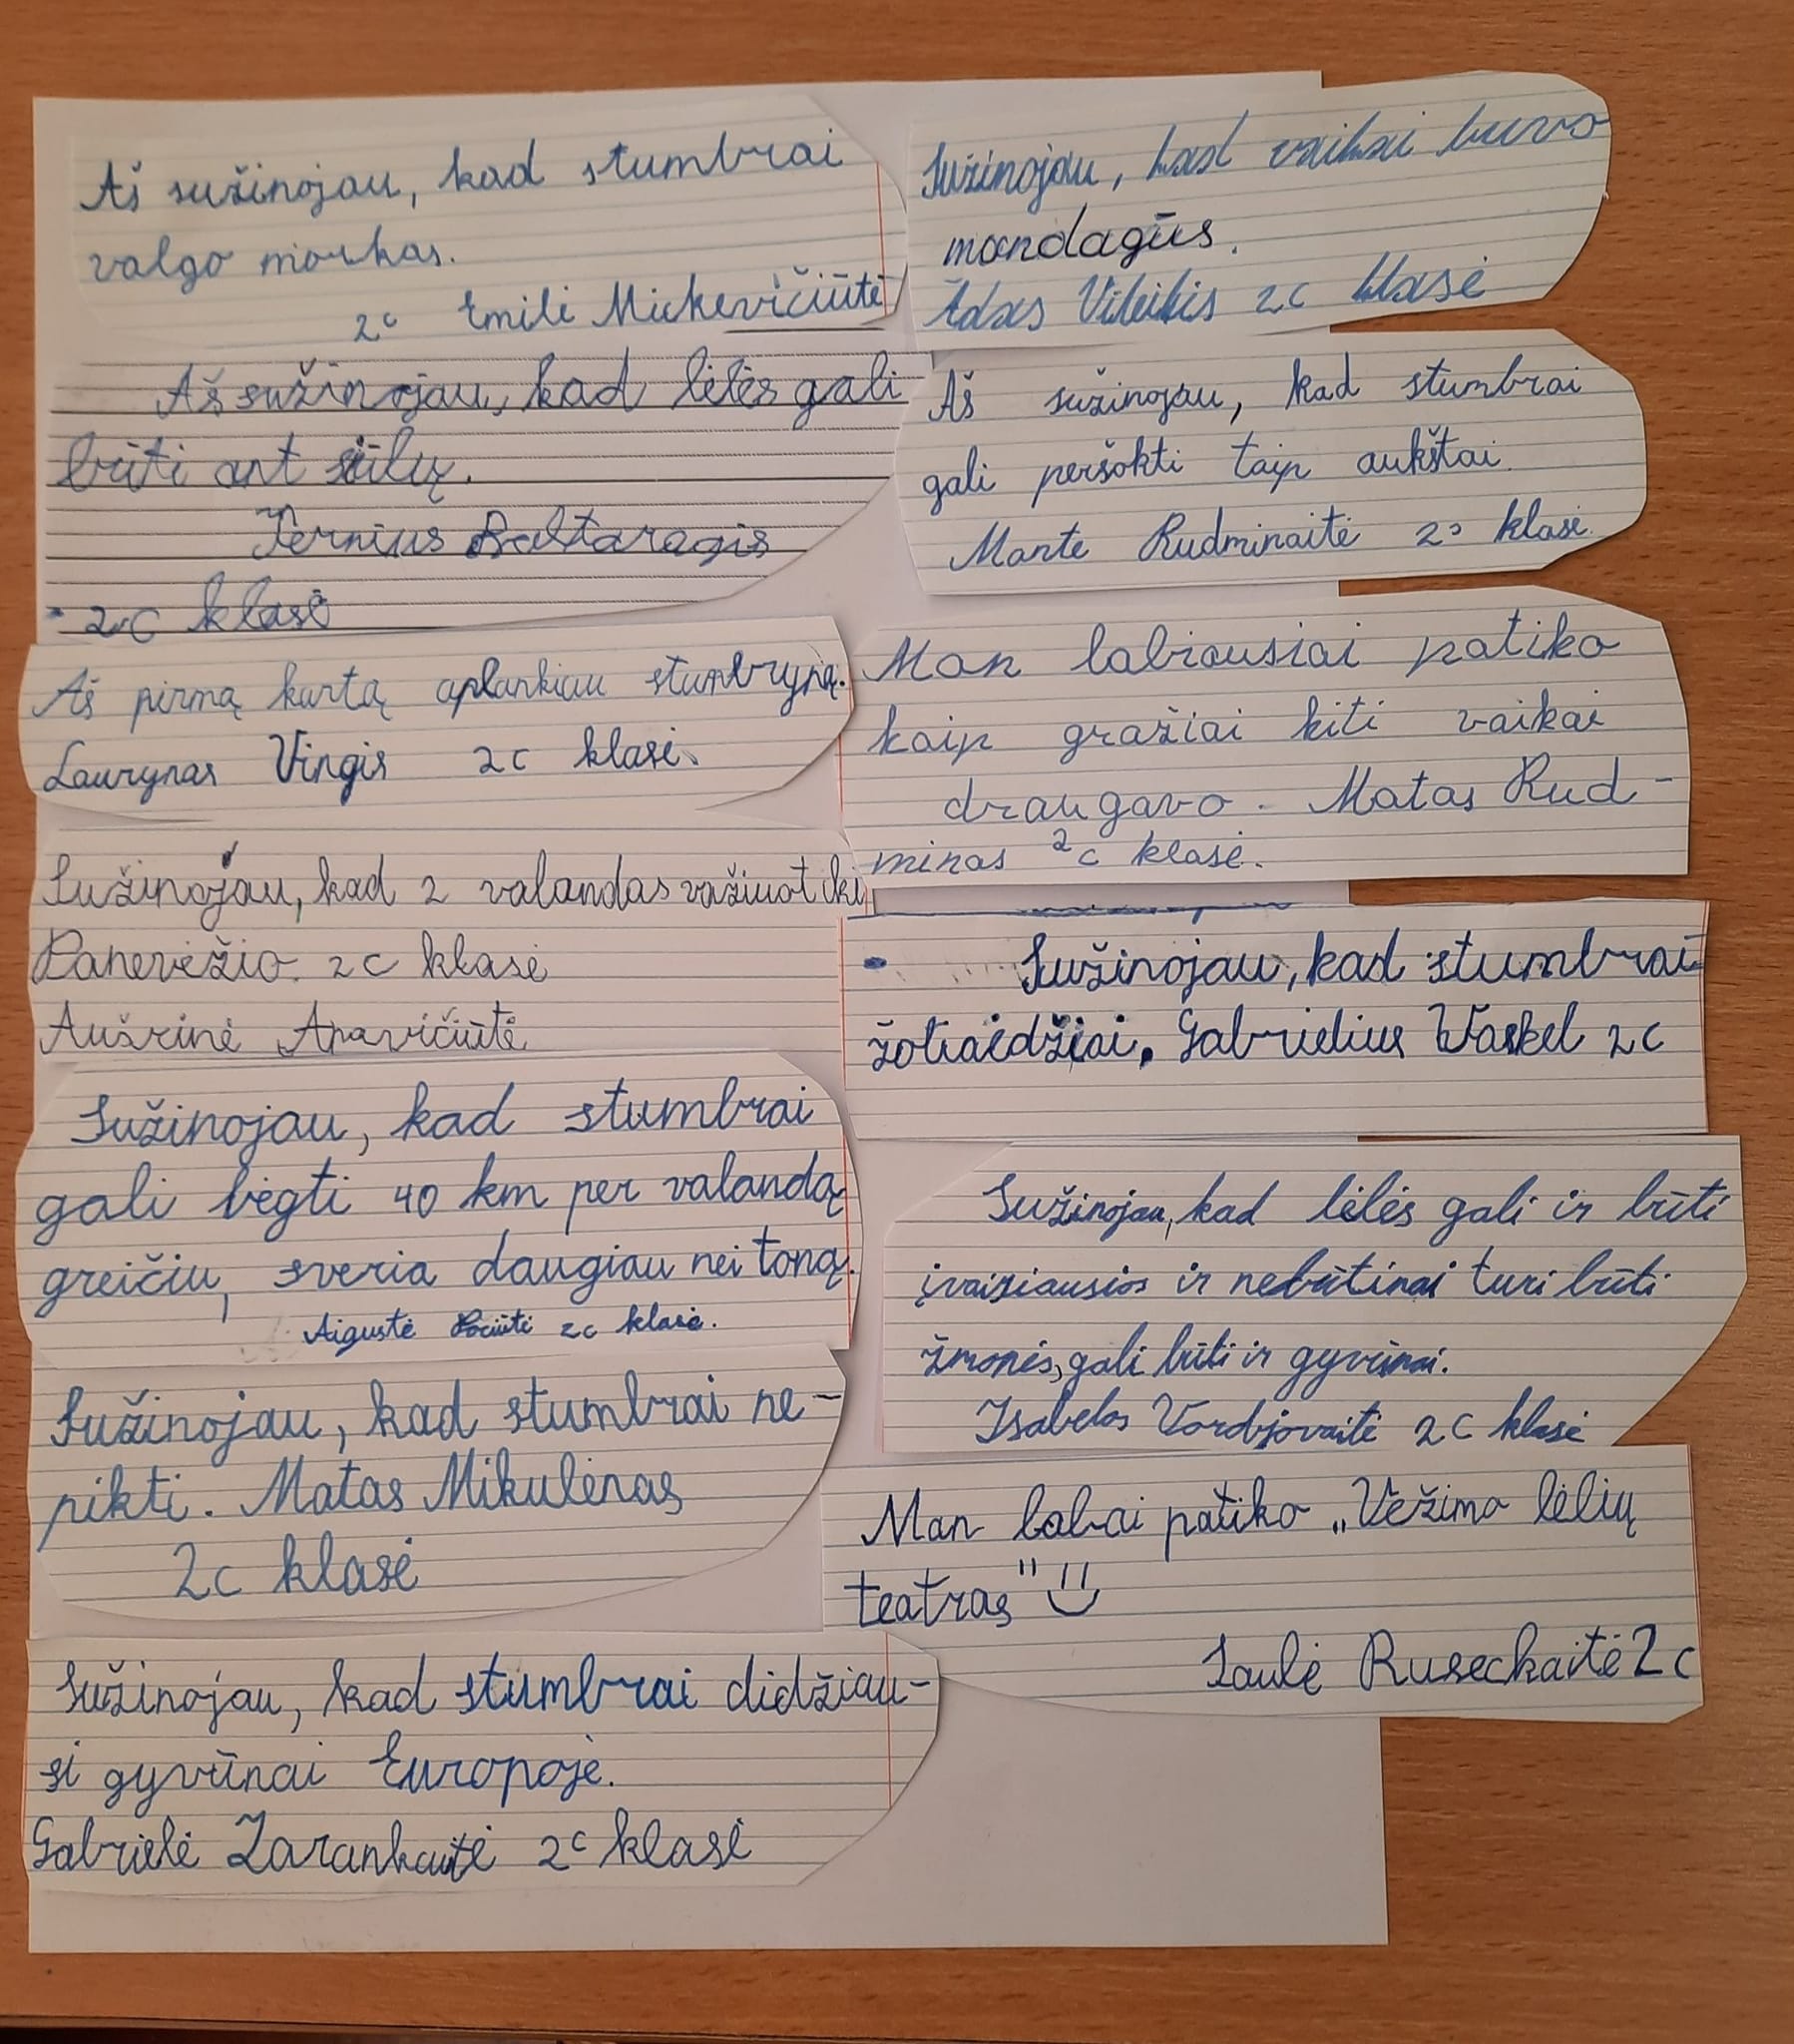 Aš sužinojau, kad stumbrai
valgo morkas.
2c Emilė Mickevičiūtė
Aš sužinojau, kad lėlės gali
būti ant siūlų.
Baltaragis
2c klasė
Aš pirmą kartą aplankiau stumbryną.
Laurynas Vingis 2c klasė.
Sužinojau, kad 2 valandas važiuot iki
Panevėžio. 2c klasė
Aušrinė
Sužinojau, kad stumbrai
gali bėgti 40 km per valandą
greičiu, sveria daugiau nei toną.
Aigustė Pociūtė 2c klasė.
Sužinojau, kad stumbrai ne-
pikti. Matas Mikulėnas
2c klasė
Sužinojau, kad stumbrai didžiau-
si gyvūnai Europoje.
Gabrielė Zarankaitė 2c klasė
Sužinojau, kad vaikai buvo
mandagūs.
Adas Vileikis 2c klasė
Aš sužinojau, kad stumbrai
gali peršokti taip aukštai.
Marte Rudminaitė 2c klasė.
Man labiausiai patiko
kaip gražiai kiti vaikai
draugavo. Matas Rud-
minas 2c klasė.
Sužinojau, kad stumbrai
žoliaėdžiai. Gabrielius Waskel 2c
Sužinojau, kad lėlės gali ir būti
įvairiausios ir nebūtinai turi būti
žmonės, gali būti ir gyvūnai.
2c klasė
Man labai patiko „Vežimo lėlių
teatras"
Saulė Ruseckaitė 2c